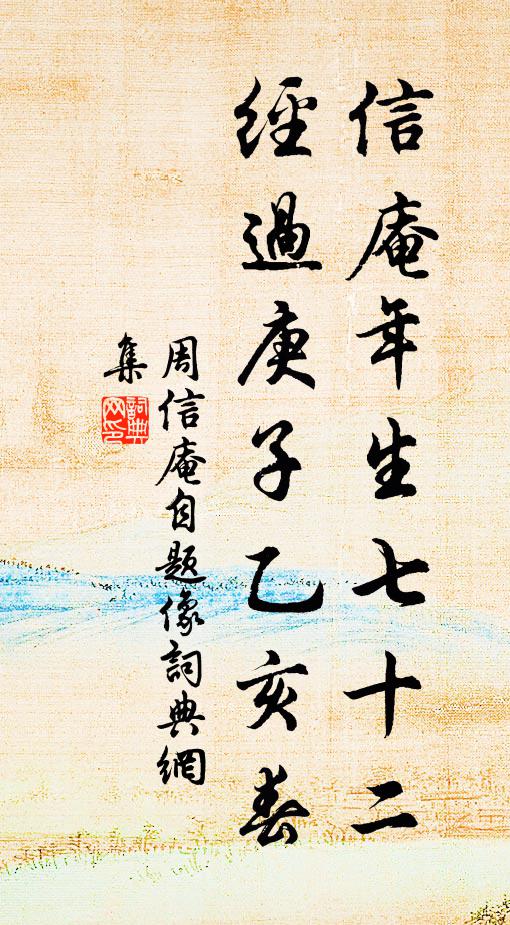 信庵年生七十二
經過庚子乙亥春
周信庵自题像詞典網
集
詞典
网印